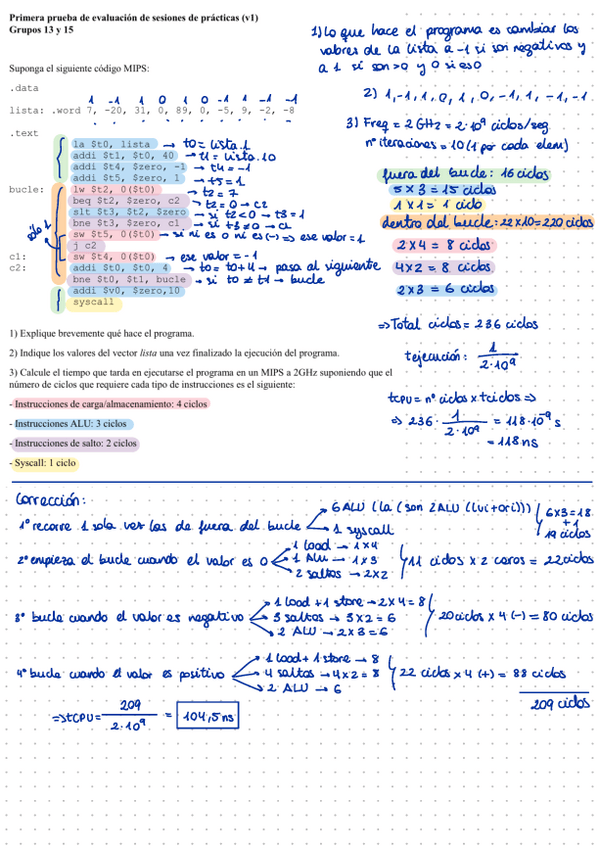 Primera prueba de evaluación de sesiones de prácticas (v1)
Grupos 13 y 15
1) Lo que hace el programa es cambiar los
valores de la lista a -1 si son negativos y
a 1 si son >0 y 0 si es 0
Suponga el siguiente código MIPS:
.data
1 -1 1 0 1 0 -1 1 -1 -1
lista: .word 7, -20, 31, 0, 89, 0, -5, 9, -2, -8
2) 1,-1,1,0,1,0,-1,1,-1,-1
3) Freq = 2 GHz = 2·10⁹ ciclos/seg
nº iteraciones = 10 (1 por cada elem)
.text
la $t0, lista → t0 = lista.1
addi $t1, $t0, 40 → t1 = lista.10
addi $t4, $zero, -1 → t4 = -1
addi $t5, $zero, 1 → t5 = 1
bucle: lw $t2, 0($t0) → t2 = 7
beq $t2, $zero, c2 → t2 = 0 → c2
slt $t3, $t2, $zero → si t2<0 → t3=1
bne $t3, $zero, c1 → si t3≠0 → c1
sólo 1
sw $t5, 0($t0) → si ni es 0 ni es (-) => ese valor = 1
j c2
c1: sw $t4, 0($t0) → ese valor = -1
c2: addi $t0, $t0, 4 → t0 = t0+4 → pasa al siguiente
bne $t0, $t1, bucle → si t0 ≠ t1 → bucle
addi $v0, $zero,10
syscall
fuera del bucle: 16 ciclos
5 x 3 = 15 ciclos
1 x 1 = 1 ciclo
dentro del bucle: 22x10=220 ciclos
2 x 4 = 8 ciclos
4 x 2 = 8 ciclos
2 x 3 = 6 ciclos
=> Total ciclos = 236 ciclos
tejecución: 1 / 2·10⁹
tCPU = nº ciclos x tciclos =>
=> 236 · 1 / 2·10⁹ = 118·10⁻⁹ s
= 118 ns
1) Explique brevemente qué hace el programa.
2) Indique los valores del vector lista una vez finalizado la ejecución del programa.
3) Calcule el tiempo que tarda en ejecutarse el programa en un MIPS a 2GHz suponiendo que el
número de ciclos que requiere cada tipo de instrucciones es el siguiente:
- Instrucciones de carga/almacenamiento: 4 ciclos
- Instrucciones ALU: 3 ciclos
- Instrucciones de salto: 2 ciclos
- Syscall: 1 ciclo
Corrección:
1º recorre 1 sola vez las de fuera del bucle
6 ALU (la (son 2 ALU (lui+ori)))
1 syscall
6x3=18
+1
19 ciclos
2º empieza el bucle cuando el valor es 0
1 load → 1x4
1 ALU → 1x3
2 saltos → 2x2
11 ciclos x 2 ceros = 22 ciclos
3º bucle cuando el valor es negativo
1 load + 1 store → 2x4 = 8
3 saltos → 3x2 = 6
2 ALU → 2x3 = 6
20 ciclos x 4 (-) = 80 ciclos
4º bucle cuando el valor es positivo
1 load + 1 store → 8
4 saltos → 4x2 = 8
2 ALU → 6
22 ciclos x 4 (+) = 88 ciclos
209 ciclos
=> tCPU = 209 / 2·10⁹ = 104,5 ns